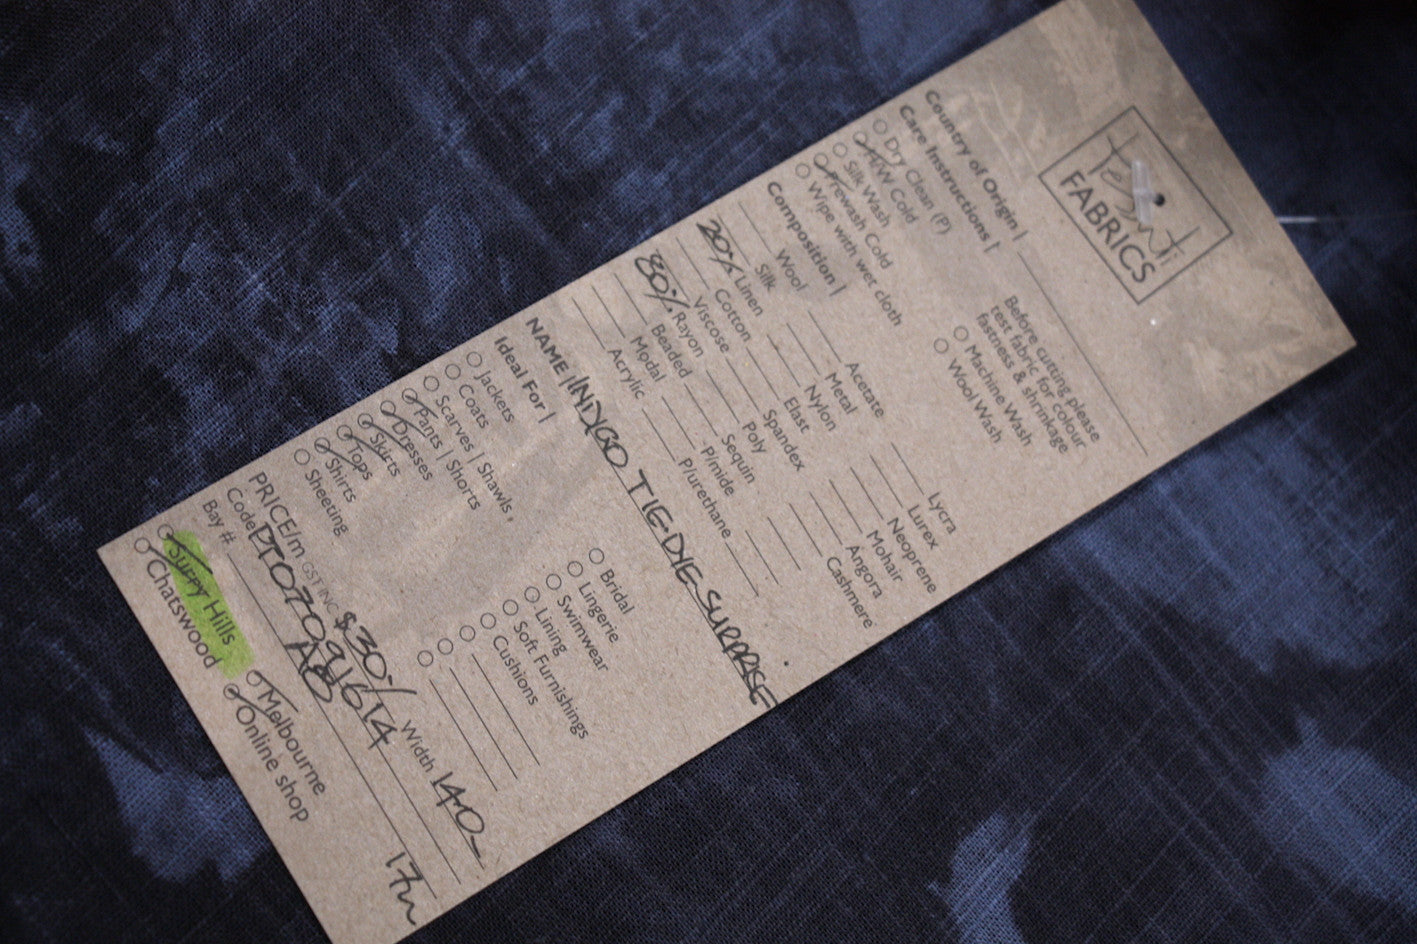 Tessuti
FABRICS
Country of Origin |
Care Instructions |
Dry Clean (P)
H/W Cold
Silk Wash
Prewash Cold
Wipe with wet cloth
Before cutting please
test fabric for colour
fastness & shrinkage
Machine Wash
Wool Wash
Composition |
Wool
Silk
20% Linen
Cotton
Viscose
80% Rayon
Beaded
Modal
Acrylic
Acetate
Metal
Nylon
Elast
Spandex
Poly
Sequin
P/mide
P/urethane
Lycra
Lurex
Neoprene
Mohair
Angora
Cashmere
NAME | INDYGO TIE-DYE SURPRISE
Ideal For |
Jackets
Coats
Scarves | Shawls
Pants | Shorts
Dresses
Skirts
Tops
Shirts
Sheeting
Bridal
Lingerie
Swimwear
Lining
Soft Furnishings
Cushions
PRICE/m GST INC $30/- Width 140-
Code PT07091614
Bay # A8 17m
Surry Hills Melbourne
Chatswood Online shop